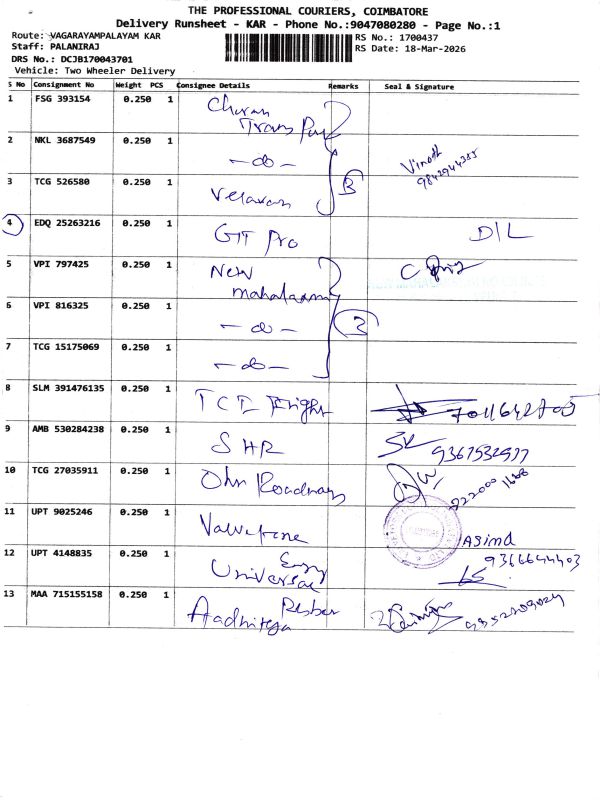 THE PROFESSIONAL COURIERS, COIMBATORE
Delivery Runsheet - KAR - Phone No.:9047080280 - Page No.:1
Route: VAGARAYAMPALAYAM KAR RS No.: 1700437
Staff: PALANIRAJ RS Date: 18-Mar-2026
DRS No.: DCJB170043701
Vehicle: Two Wheeler Delivery
S No Consignment No Weight PCS Consignee Details Remarks Seal & Signature
1 FSG 393154 0.250 1
2 NKL 3687549 0.250 1 -do- Vinoth
3 TCG 526580 0.250 1 Velavan 3
4 EDQ 25263216 0.250 1 GTT Pro D/L
5 VPI 797425 0.250 1 New
6 VPI 816325 0.250 1 -do-
7 TCG 15175069 0.250 1 -do-
8 SLM 391476135 0.250 1
9 AMB 530284238 0.250 1 SHR
10 TCG 27035911 0.250 1 Roadways
11 UPT 9025246 0.250 1
12 UPT 4148835 0.250 1 Universal 9366644403
13 MAA 715155158 0.250 1